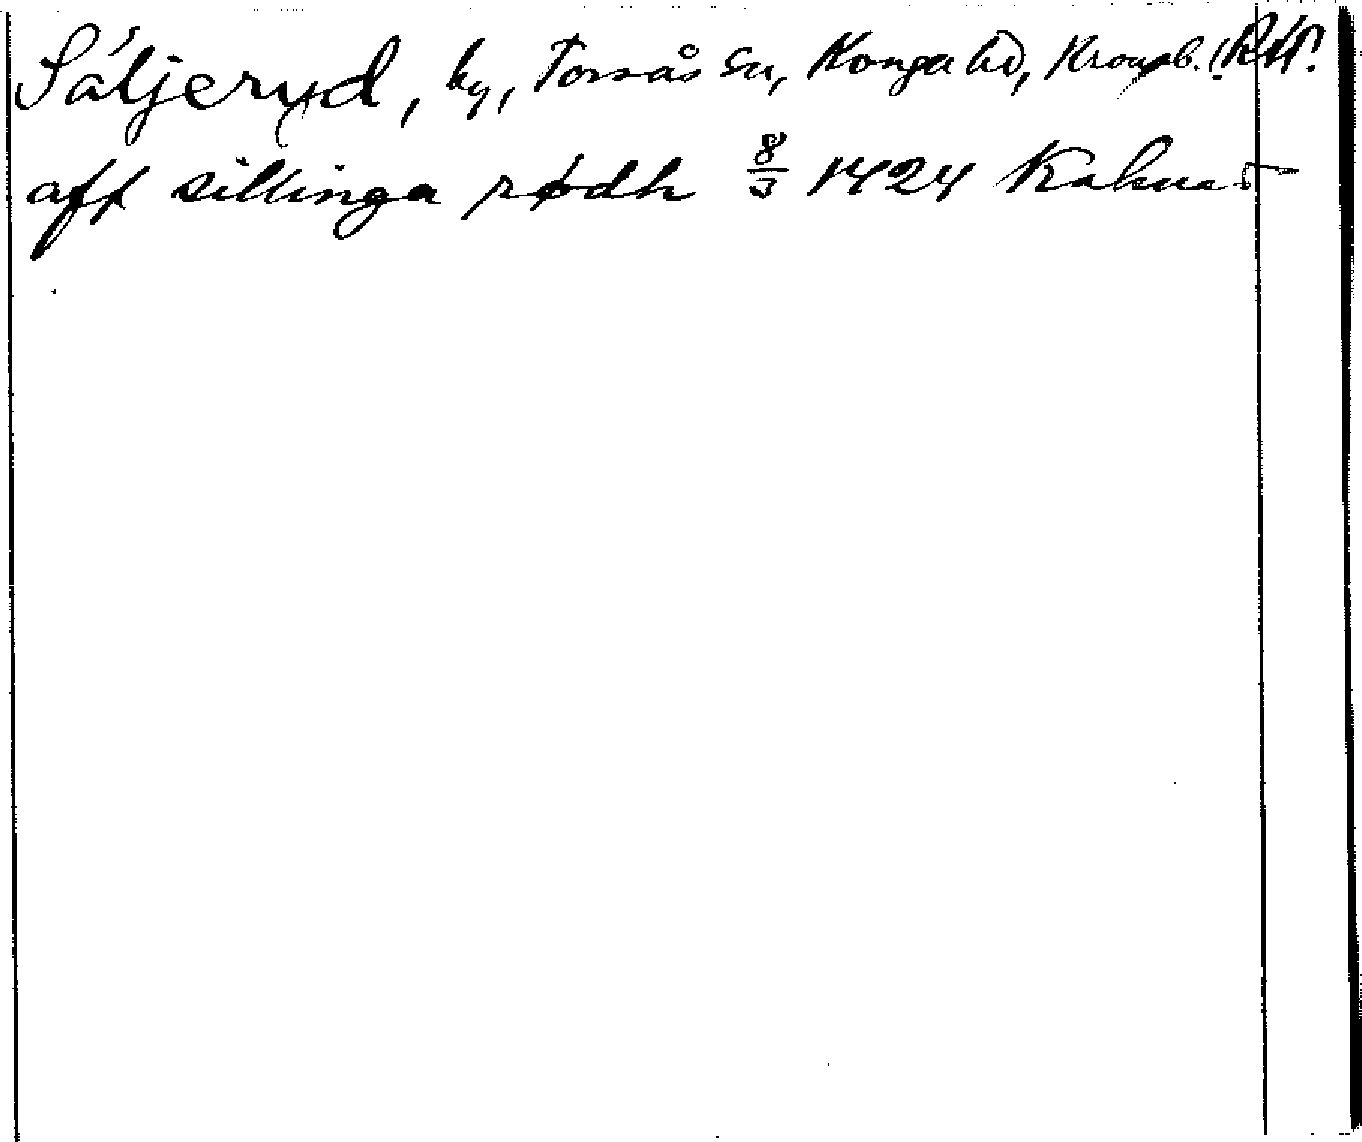 Säljeryd, by, Torsås sn, Konga hd, Kronob.
aff sillinga rødh 8/3 1424